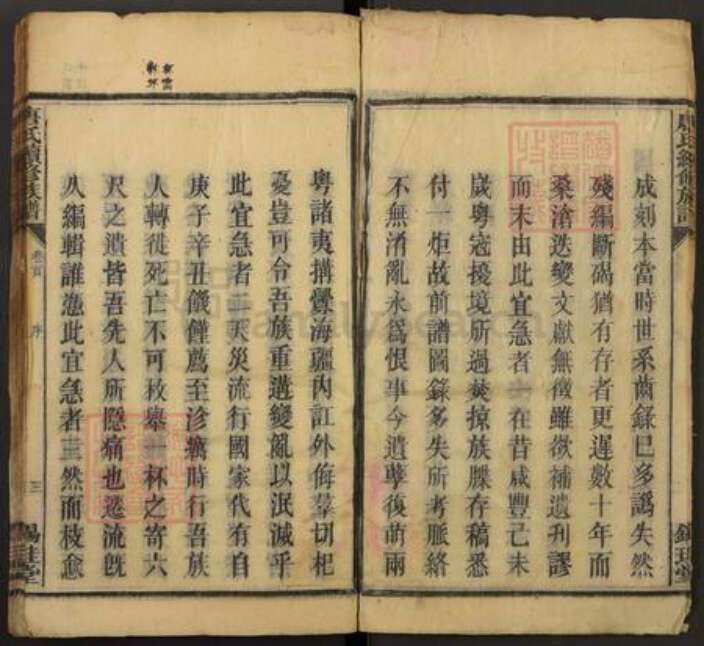 成刻本當時世系齒錄已多譌失然
殘編斷碣猶有存者更遲數十年而
桑滄迭變文獻無徵雖欲補遺刊謬
而末由此宜急者 在昔咸豐己未
歲粵寇擾境所過焚掠族牒存稿悉
付一炬故前譜圖錄多失所考脈絡
不無淆亂永爲恨事今遺孽復萌兩
粵諸夷搆釁海疆內訌外侮羣切杞
憂豈可令吾族重遘變亂以泯滅乎
此宜急者二天災流行國家代有自
庚子辛丑饑饉薦至沴癘時行吾族
人轉徙死亡不可枚舉 杯之寄六
尺之遺皆吾先人所隱痛也遷流旣
久編輯誰憑此宜急者三然而枝愈
氏續修族譜
卷首
序
三
錫 堂